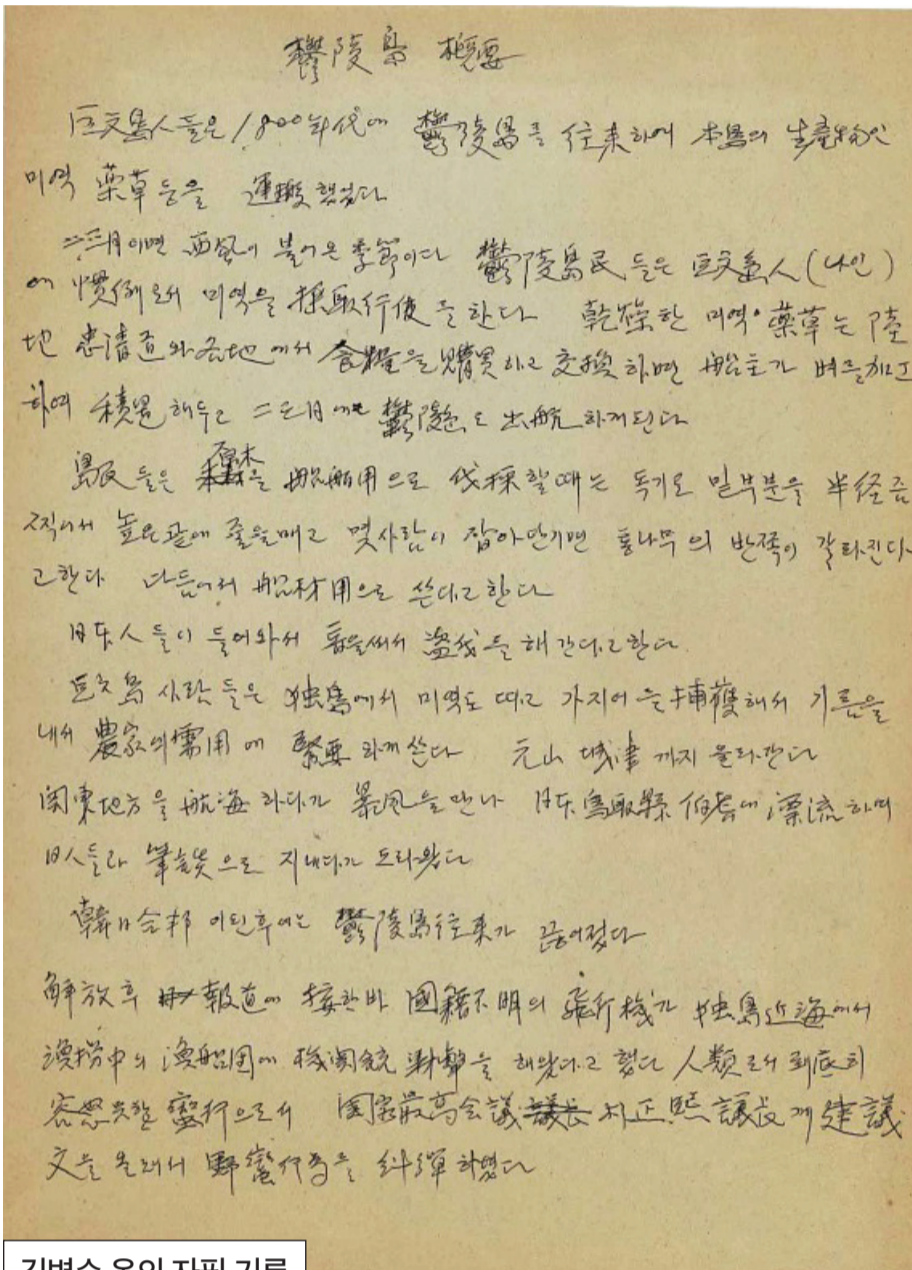 鬱陵島 概要
巨文島人들은 1,800年代에 鬱陵島를 往来하여 本島의 生産物인
미역 藥草 등을 運搬했었다
二三月이면 西風이 불어온 季節이다 鬱陵島民들은 巨文島人(나인)
에 慣例로서 미역을 採取行使를 한다 乾燥한 미역 藥草는 陸
地 忠淸道와 各地에서 食糧을 購買하고 交換하면 船主가 벼를 加工
하여 積置해두고 二三月에는 鬱陵島로 出航하게된다
島民들은 原木을 船舶用으로 伐採할때는 독기로 밑부분을 半径즘
찍어서 높은곧에 줄을매고 몇사람이 잡아단기면 통나무의 반쪽이 갈라진다
고한다 다듬어서 船材用으로 쓴다고한다
日本人들이 들어와서 盜伐을 해간다고한다
巨文島 사람들은 独島에서 미역도 따고 가지어를 捕獲해서 기름을
내서 農家의 需用에 緊要하게 쓴다 元山 城津까지 올라간다
関東地方을 航海하다가 暴風을 만나 日本 鳥取県 伯耆에 漂流하여
日人들과 筆談으로 지내다가 도라왔다
韓日合邦이된후에는 鬱陵島往来가 끊어젔다
解放후 報道에 接한바 國籍不明의 飛行機가 独島近海에서
漁撈中의 漁船団에 機関銃 射擊을 해왔다고 했다 人類로서 到底히
容恕못할 蠻行으로서 国家最高会議 議長 朴正熙 議長께 建議
文을 올려서 野蠻行爲를 糾彈하였다